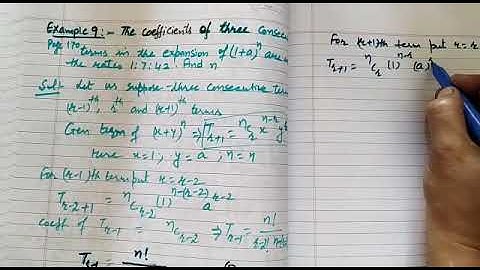 Example 9:- The coefficients of three consecu
Page 170 terms in the expansion of (1+a)^n are in
the rates 1:7:42. Find n
Sol:- Let us suppose three consecutive term
(r-1)^th, r^th and (r+1)^th terms
Gen term of (x+y)^n ⇒ T_{r+1} = ^nC_r x^{n-r} y
Here x=1, y=a, n=n
For (r-1)th term put r=r-2
T_{r-2+1} = ^nC_{r-2} (1)^{n-(r-2)} a^{r-2}
coeff of T_{r-1} = ^nC_{r-2} ⇒ T_{r-1} = n!
n!
For (r+1)th term put r=r
T_{r+1} = ^nC_r (1)^{n-r} (a)